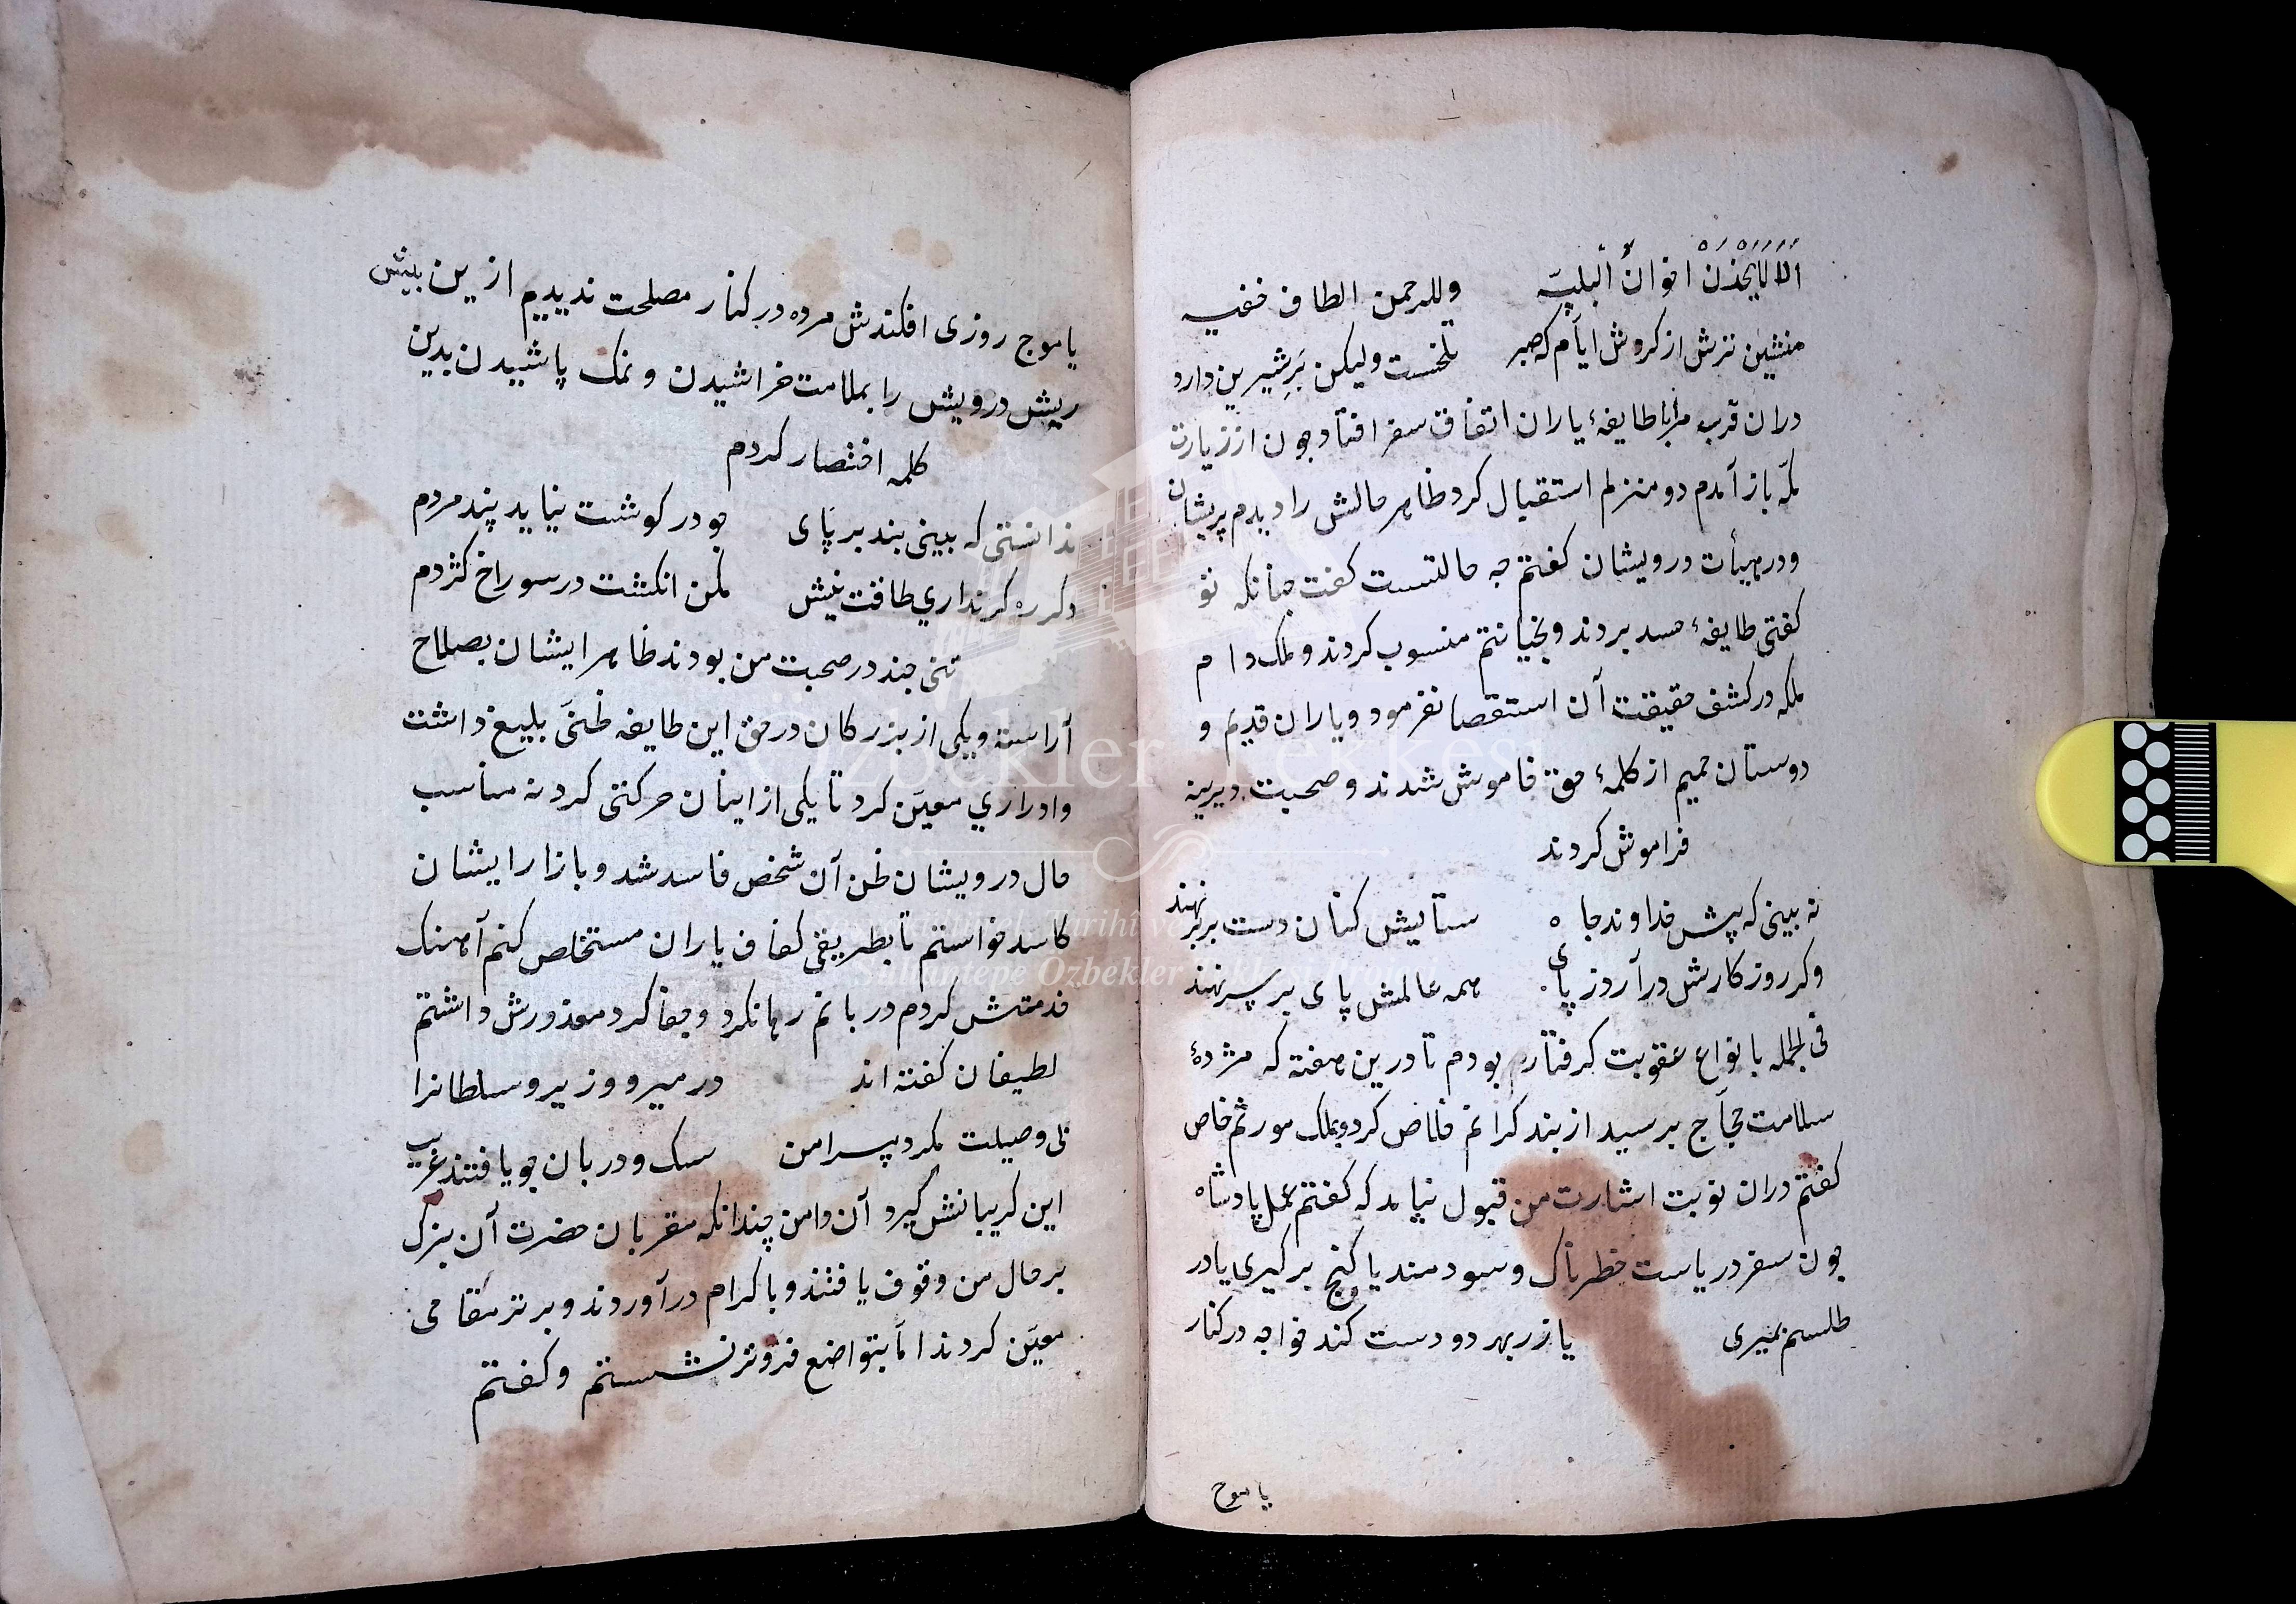 الا لا یحزنن اخوان البلیه وللرحمن الطاف خفیه
منشین ترش از کردش ایام که صبر تلخست ولیکن بر شیرین دارد
دران قرب مرابا طایفهٔ یاران اتفاق سفر افتاد جون از زیارت
مکه باز آمدم دو منزلم استقبال کرد ظاهر حالش را دیدم پریشان
و در هیأت درویشان کفتم جه حالتست کفت جنانکه تو
کفتی طایفهٔ حسد بردند و بخیانتم منسوب کردند و ملک دام
ملکه در کشف حقیقت آن استقصا نفرمود و یاران قدیم و
دوستان حمیم از کلمهٔ حق خاموش شدند و صحبت دیرینه
فراموش کردند
نه بینی که پیش خداوند جاه ستایش کنان دست بر بر نهند
وکر روزکارش درآرد ز پای همه عالمش پای بر سر نهند
فی الجمله بانواع عقوبت کرفتارم بودم تا درین هفته که مژدهٔ
سلامت حجاج برسید از بند کرانم خلاص کرد و ملک مورثم خاص
کفتم دران نوبت اشارت من قبول نیامد که کفتم عمل پادشاه
جون سفر دریاست خطرناک و سودمند یا کنج برکیری یا در
طلسم بمیری یا زر بهر دو دست کند خواجه در کنار
یا موج
یا موج روزی افکندش مرده در کنار مصلحت ندیدیم ازین بیش
ریش درویش را بملامت خراشیدن و نمک پاشیدن بدین
کلمه اختصار کردم
ندانستی که بینی بند بر پای جو در کوشت نیاید پند مردم
دکر ره کر نداری طاقت نیش مکن انکشت در سوراخ کژدم
تنی جند در صحبت من بودند ظاهر ایشان بصلاح
آراسته و یکی از بزرکان در حق این طایفه ظنی بلیغ داشت
وادراری معین کرد تا یکی از اینان حرکتی کرد نه مناسب
حال درویشان ظن آن شخص فاسد شد و بازار ایشان
کاسد خواستم تا بطریقی کفاف یاران مستخلص کنم آهنک
خدمتش کردم دربانم رها نکرد و جفا کرد معذورش داشتم
لطیفان کفته اند در میر و وزیر و سلطانرا
بی وصیلت مکرد پیرامن سک و دربان جو یافتند غریب
این کریبانش کیرد آن دامن چندانکه مقربان حضرت آن بزرک
بر حال من وقوف یافتند و باکرام درآوردند و برتر مقامی
معین کردند اما بتواضع فروتر نشستم و کفتم
Özbekler Tekkesi